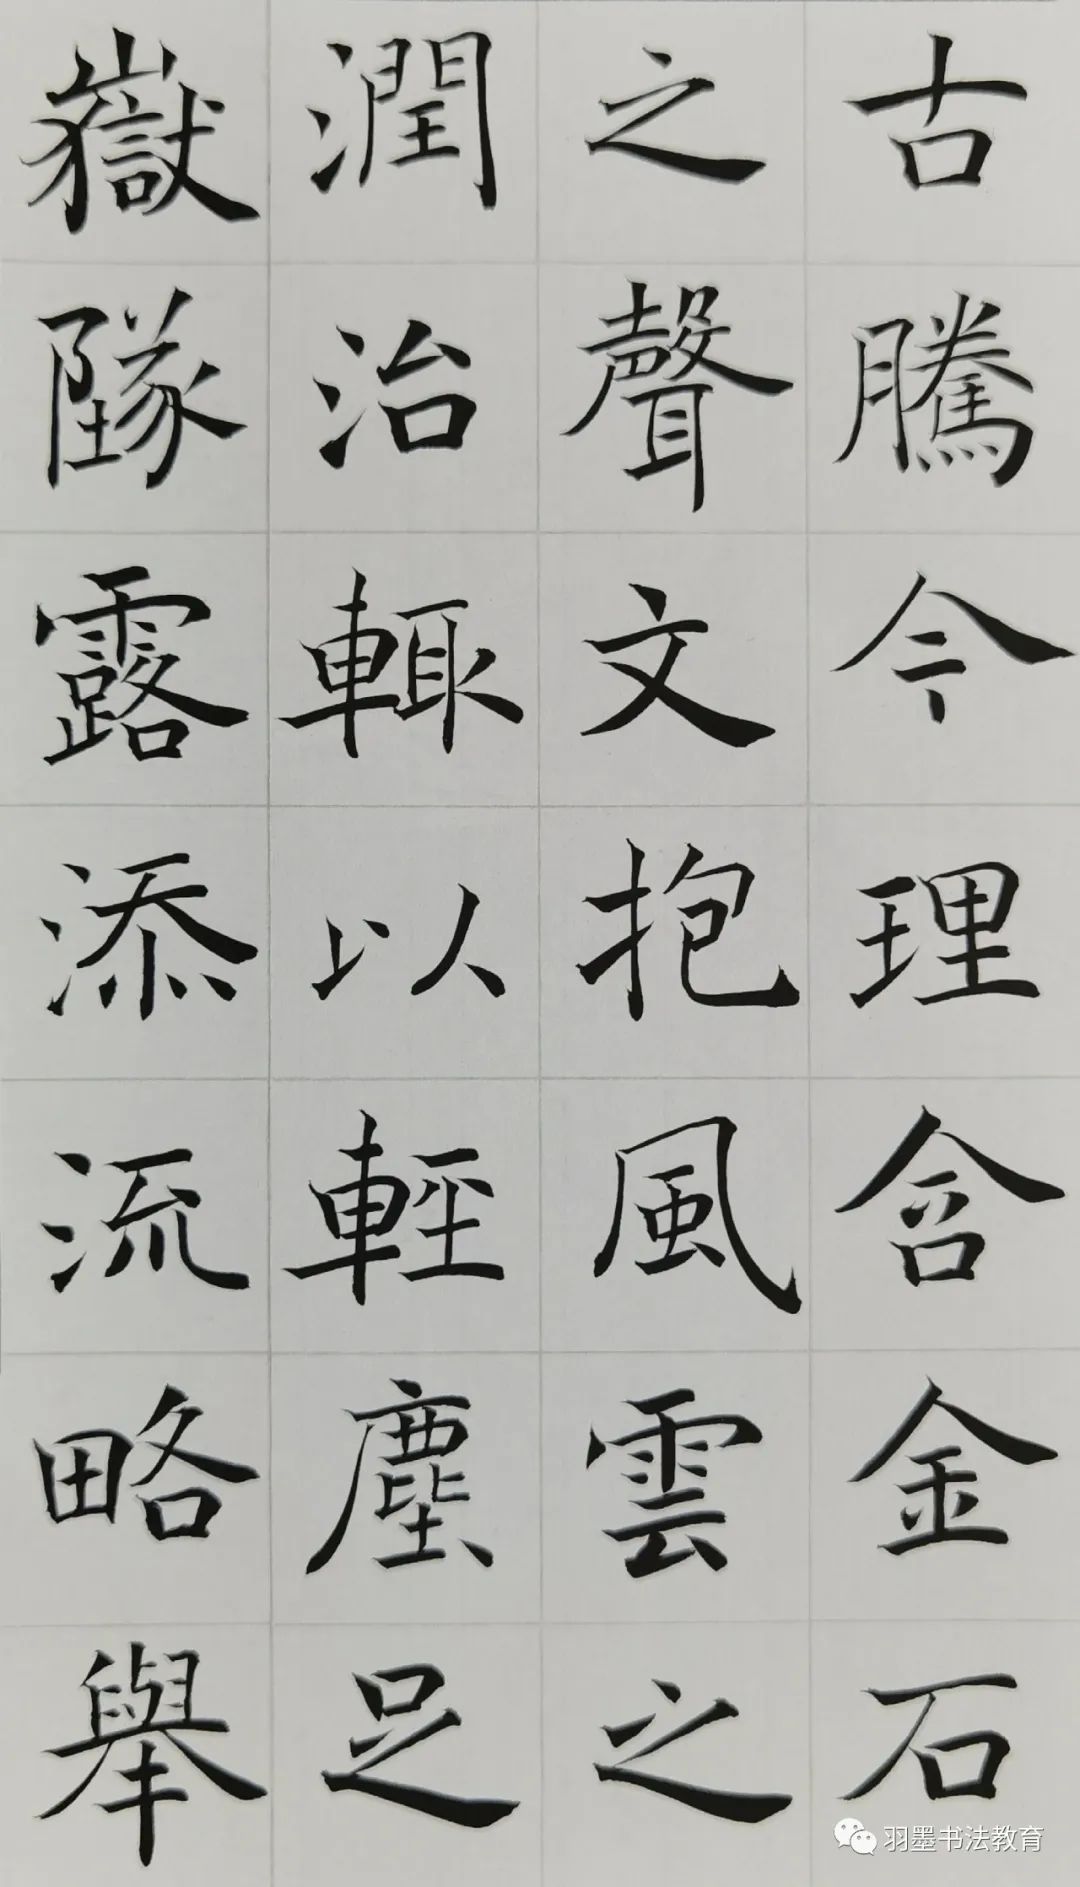 古騰今理含金石
之聲文抱風雲之
潤治輙以輕塵足
嶽墜露添流略舉
羽墨书法教育